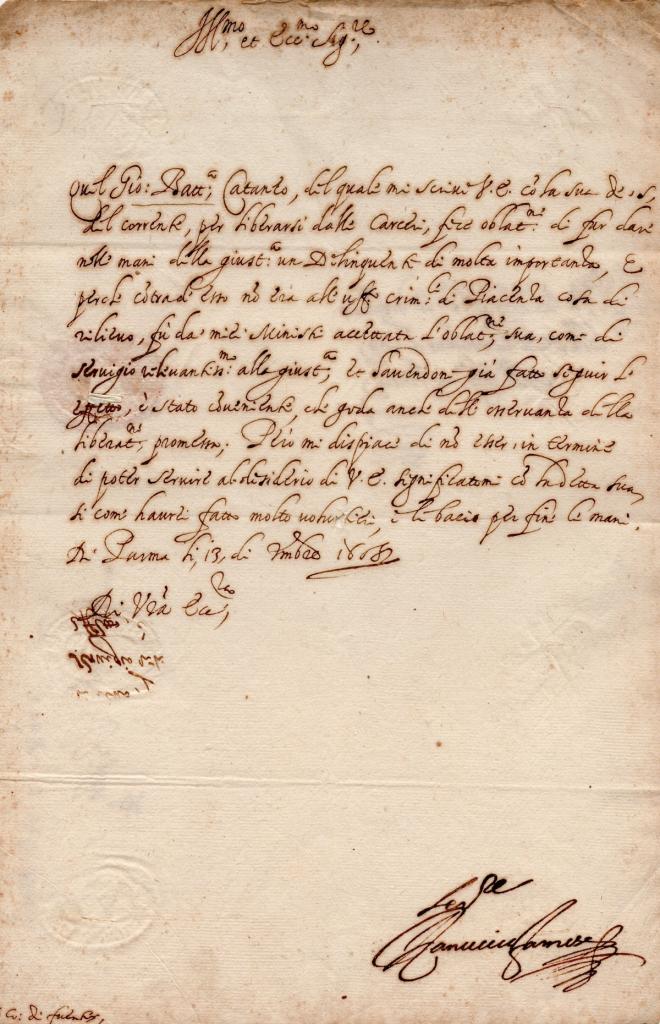 Ill.mo et Ecc.mo Sig.re
Quel Gio: Batt.a Cataneo, del quale mi scrive V.E. cō la sua de
del corrente, per liberarsi dalle Carceri, fece oblat.ne di far dare
nelle mani della giust.a un Delinquente di molta importanza, E
perche cōtra di esso nō era all'uff.o crim.le di Piacenza cosa di
rilievo, fù da miei Ministri accettata l'oblat.ne sua, come di
servigio rilevantiss.mo alla giust.a, et havendone già fatto seguir l'
effetto, è stato cōveniente, che goda anche dell'osservanza della
liberat.ne promessa; Però mi dispiace di nō esser in termine
di poter servire al desiderio di V.E. significatomi cō la detta sua,
si come haurei fatto molto volunt.ri, e le bacio per fine le mani.
Di Parma li, 13, di 9mbre
Di Vrā Ecc.za,
Ser.re
Ranuccio Farnese
Co: di fuentes,